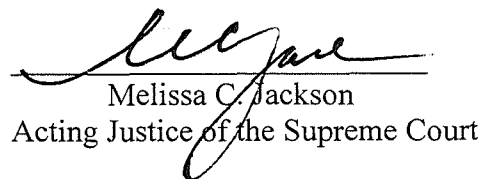 Melissa C. Jackson
Acting Justice of the Supreme Court